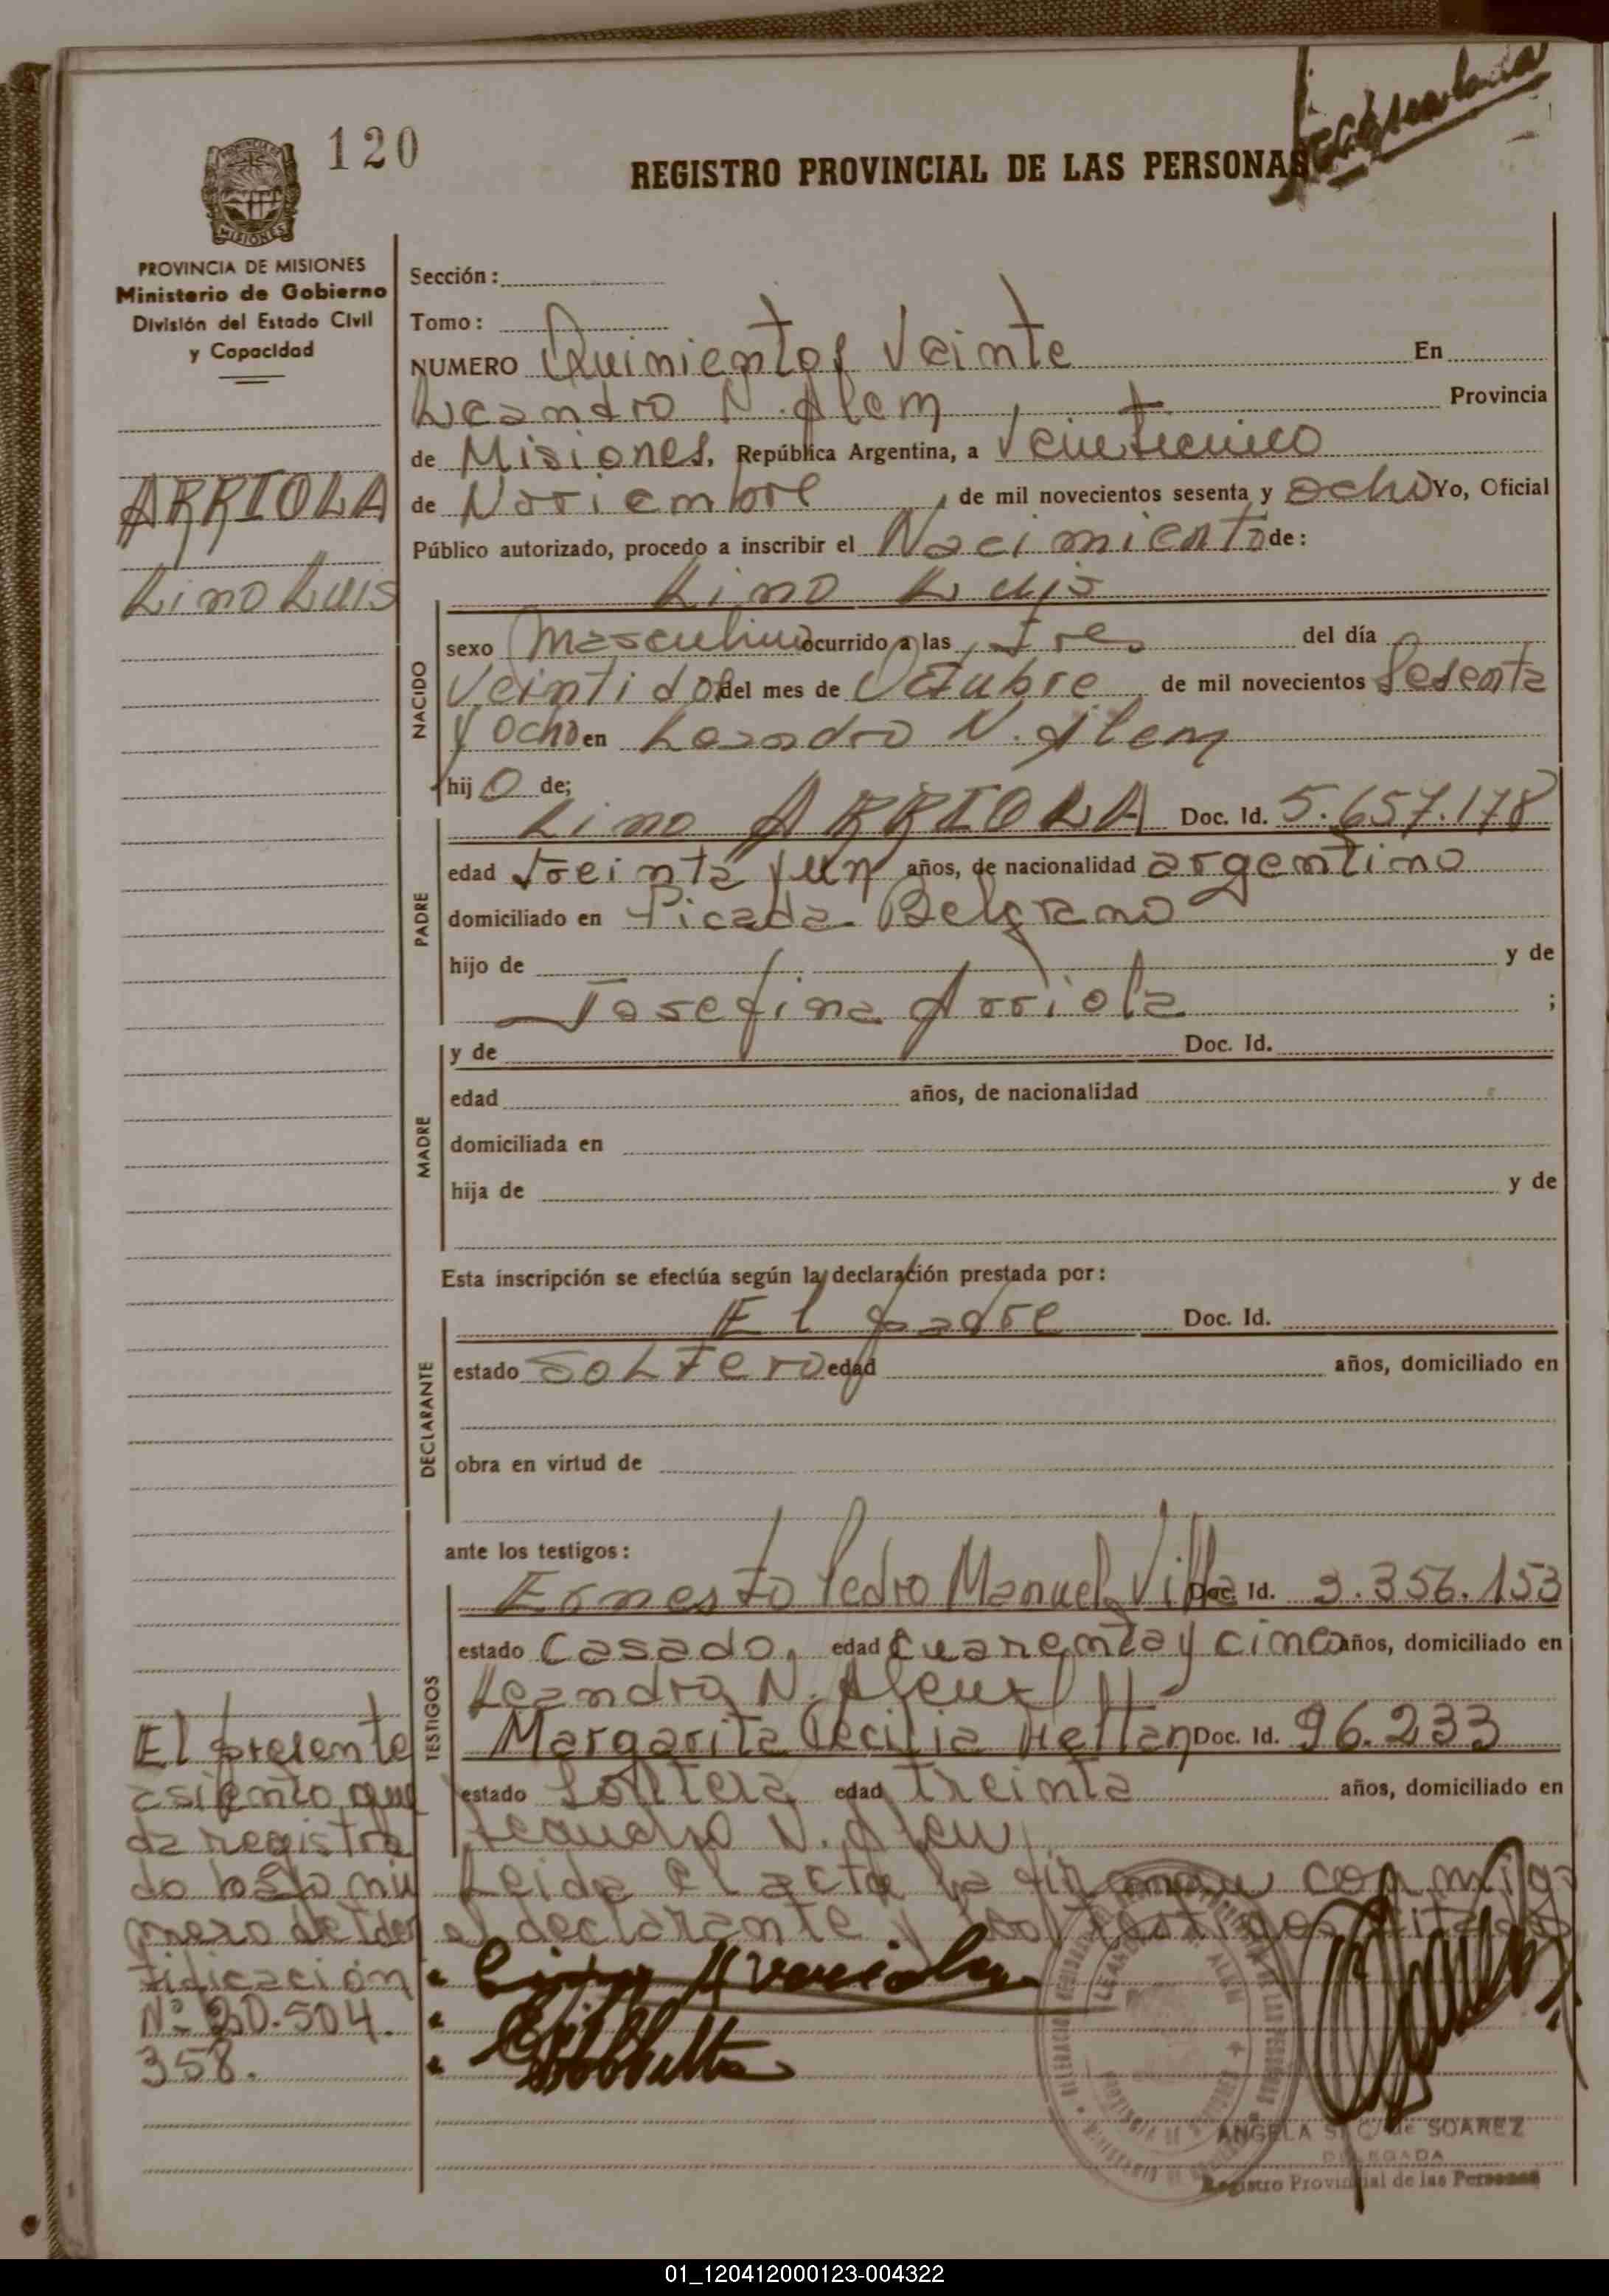 120
REGISTRO PROVINCIAL DE LAS PERSONAS
MISIONES
PROVINCIA DE MISIONES
Ministerio de Gobierno
División del Estado Civil
y Capacidad
ARRIOLA
Lino Luis
Sección:
Tomo:
NUMERO Quinientos Veinte En
Leandro N. Alem Provincia
de Misiones, República Argentina, a Veinticinco
de Noviembre, de mil novecientos sesenta y ocho Yo, Oficial
Público autorizado, procedo a inscribir el Nacimiento de:
Lino Luis
NACIDO
sexo Masculino ocurrido a las tres del día
Veintidos del mes de Octubre de mil novecientos Sesenta
y Ocho en Leandro N. Alem
hijo de;
PADRE
Lino ARRIOLA Doc. Id. 5.657.178
edad treinta y un años, de nacionalidad argentino
domiciliado en Picada Belgrano
hijo de y de
Josefina Arriola ;
MADRE
y de Doc. Id.
edad años, de nacionalidad
domiciliada en
hija de y de
Esta inscripción se efectúa según la declaración prestada por:
DECLARANTE
El padre Doc. Id.
estado Soltero edad años, domiciliado en
obra en virtud de
ante los testigos:
TESTIGOS
Ernesto Pedro Manuel Villa Doc. Id. 3.356.153
estado Casado, edad cuarenta y cinco años, domiciliado en
Leandro N. Alem
Margarita Cecilia Doc. Id. 96.233
estado Soltera edad treinta años, domiciliado en
Leandro N. Alem
Leida el acta la firman conmigo
el declarante y los testigos citados
El presente
asiento que
da registra
do bajo nú
mero de iden
tificación
Nº 20.504.
358.
Lino Arriola
ANGELA S. C. de SOAREZ
DELEGADA
Registro Provincial de las Personas
01_120412000123-004322